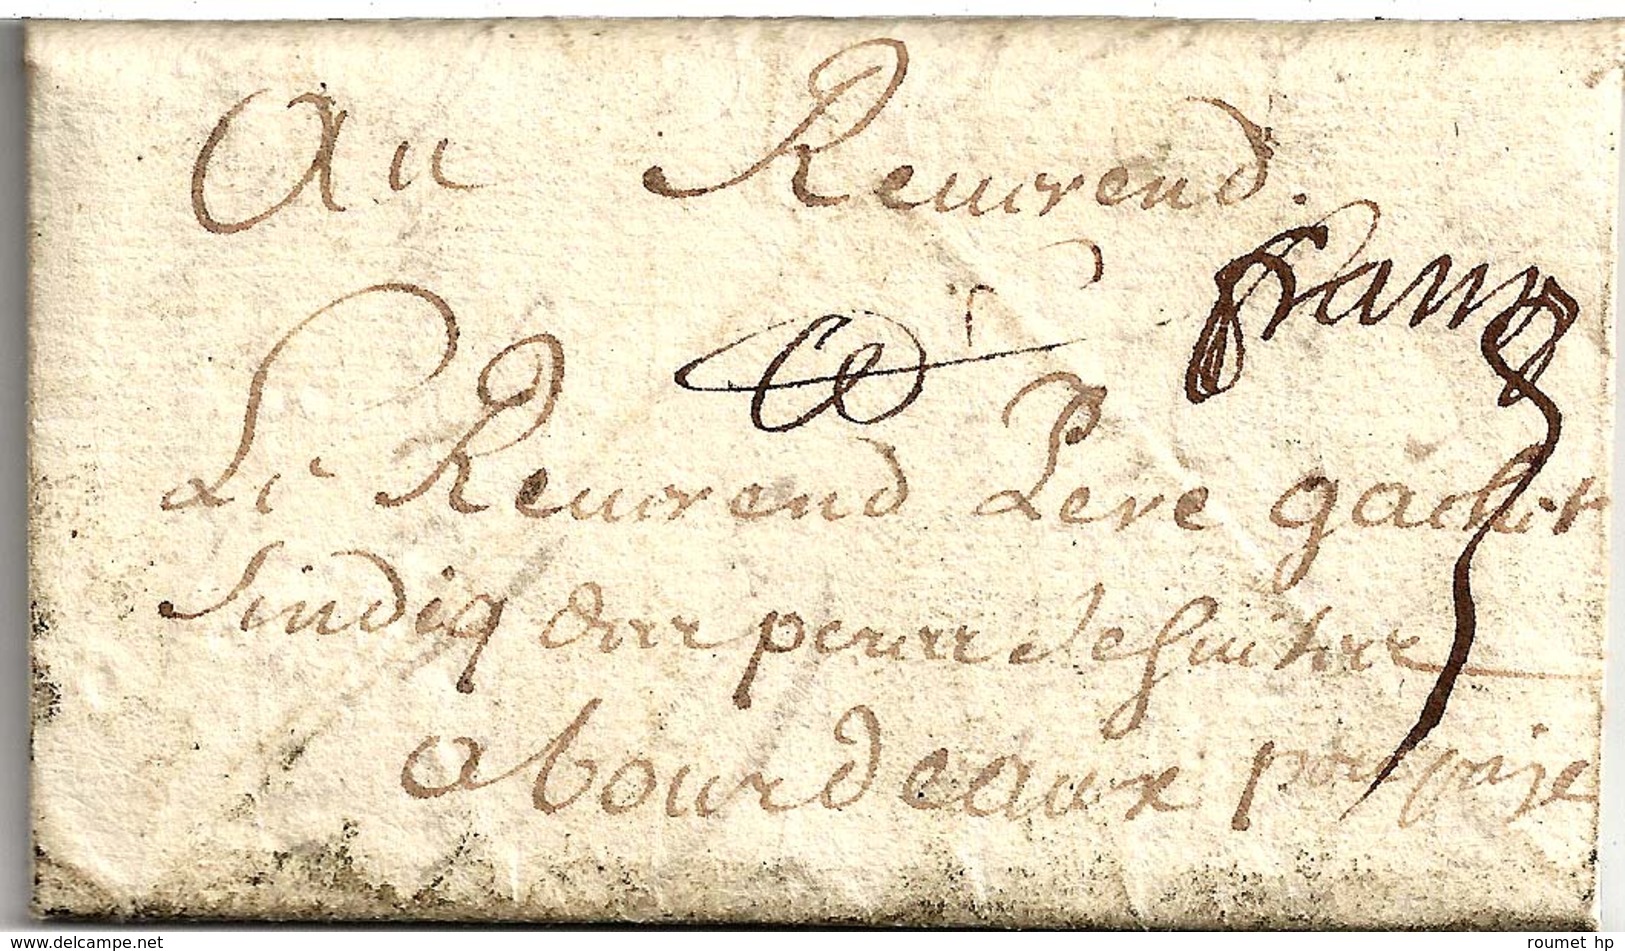 Au Reverend.
franc
Le Reverend Pere gachet
Sindiq des peres Jesuites
a bourdeaux par
delcampe.net
roumet hp